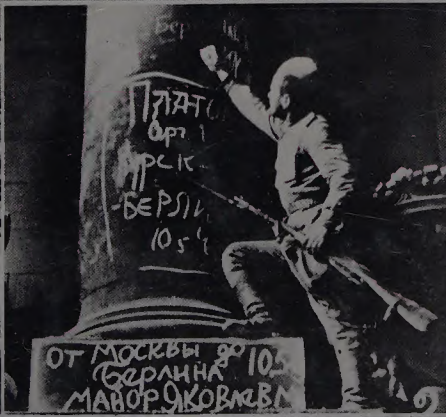 Бер
ПЛАТО
Орл
КУРСК-
-БЕРЛИ
10 5
ОТ МОСКВЫ до
БЕРЛИНА 10.5
МАЙОР ЯКОВЛЕВ М